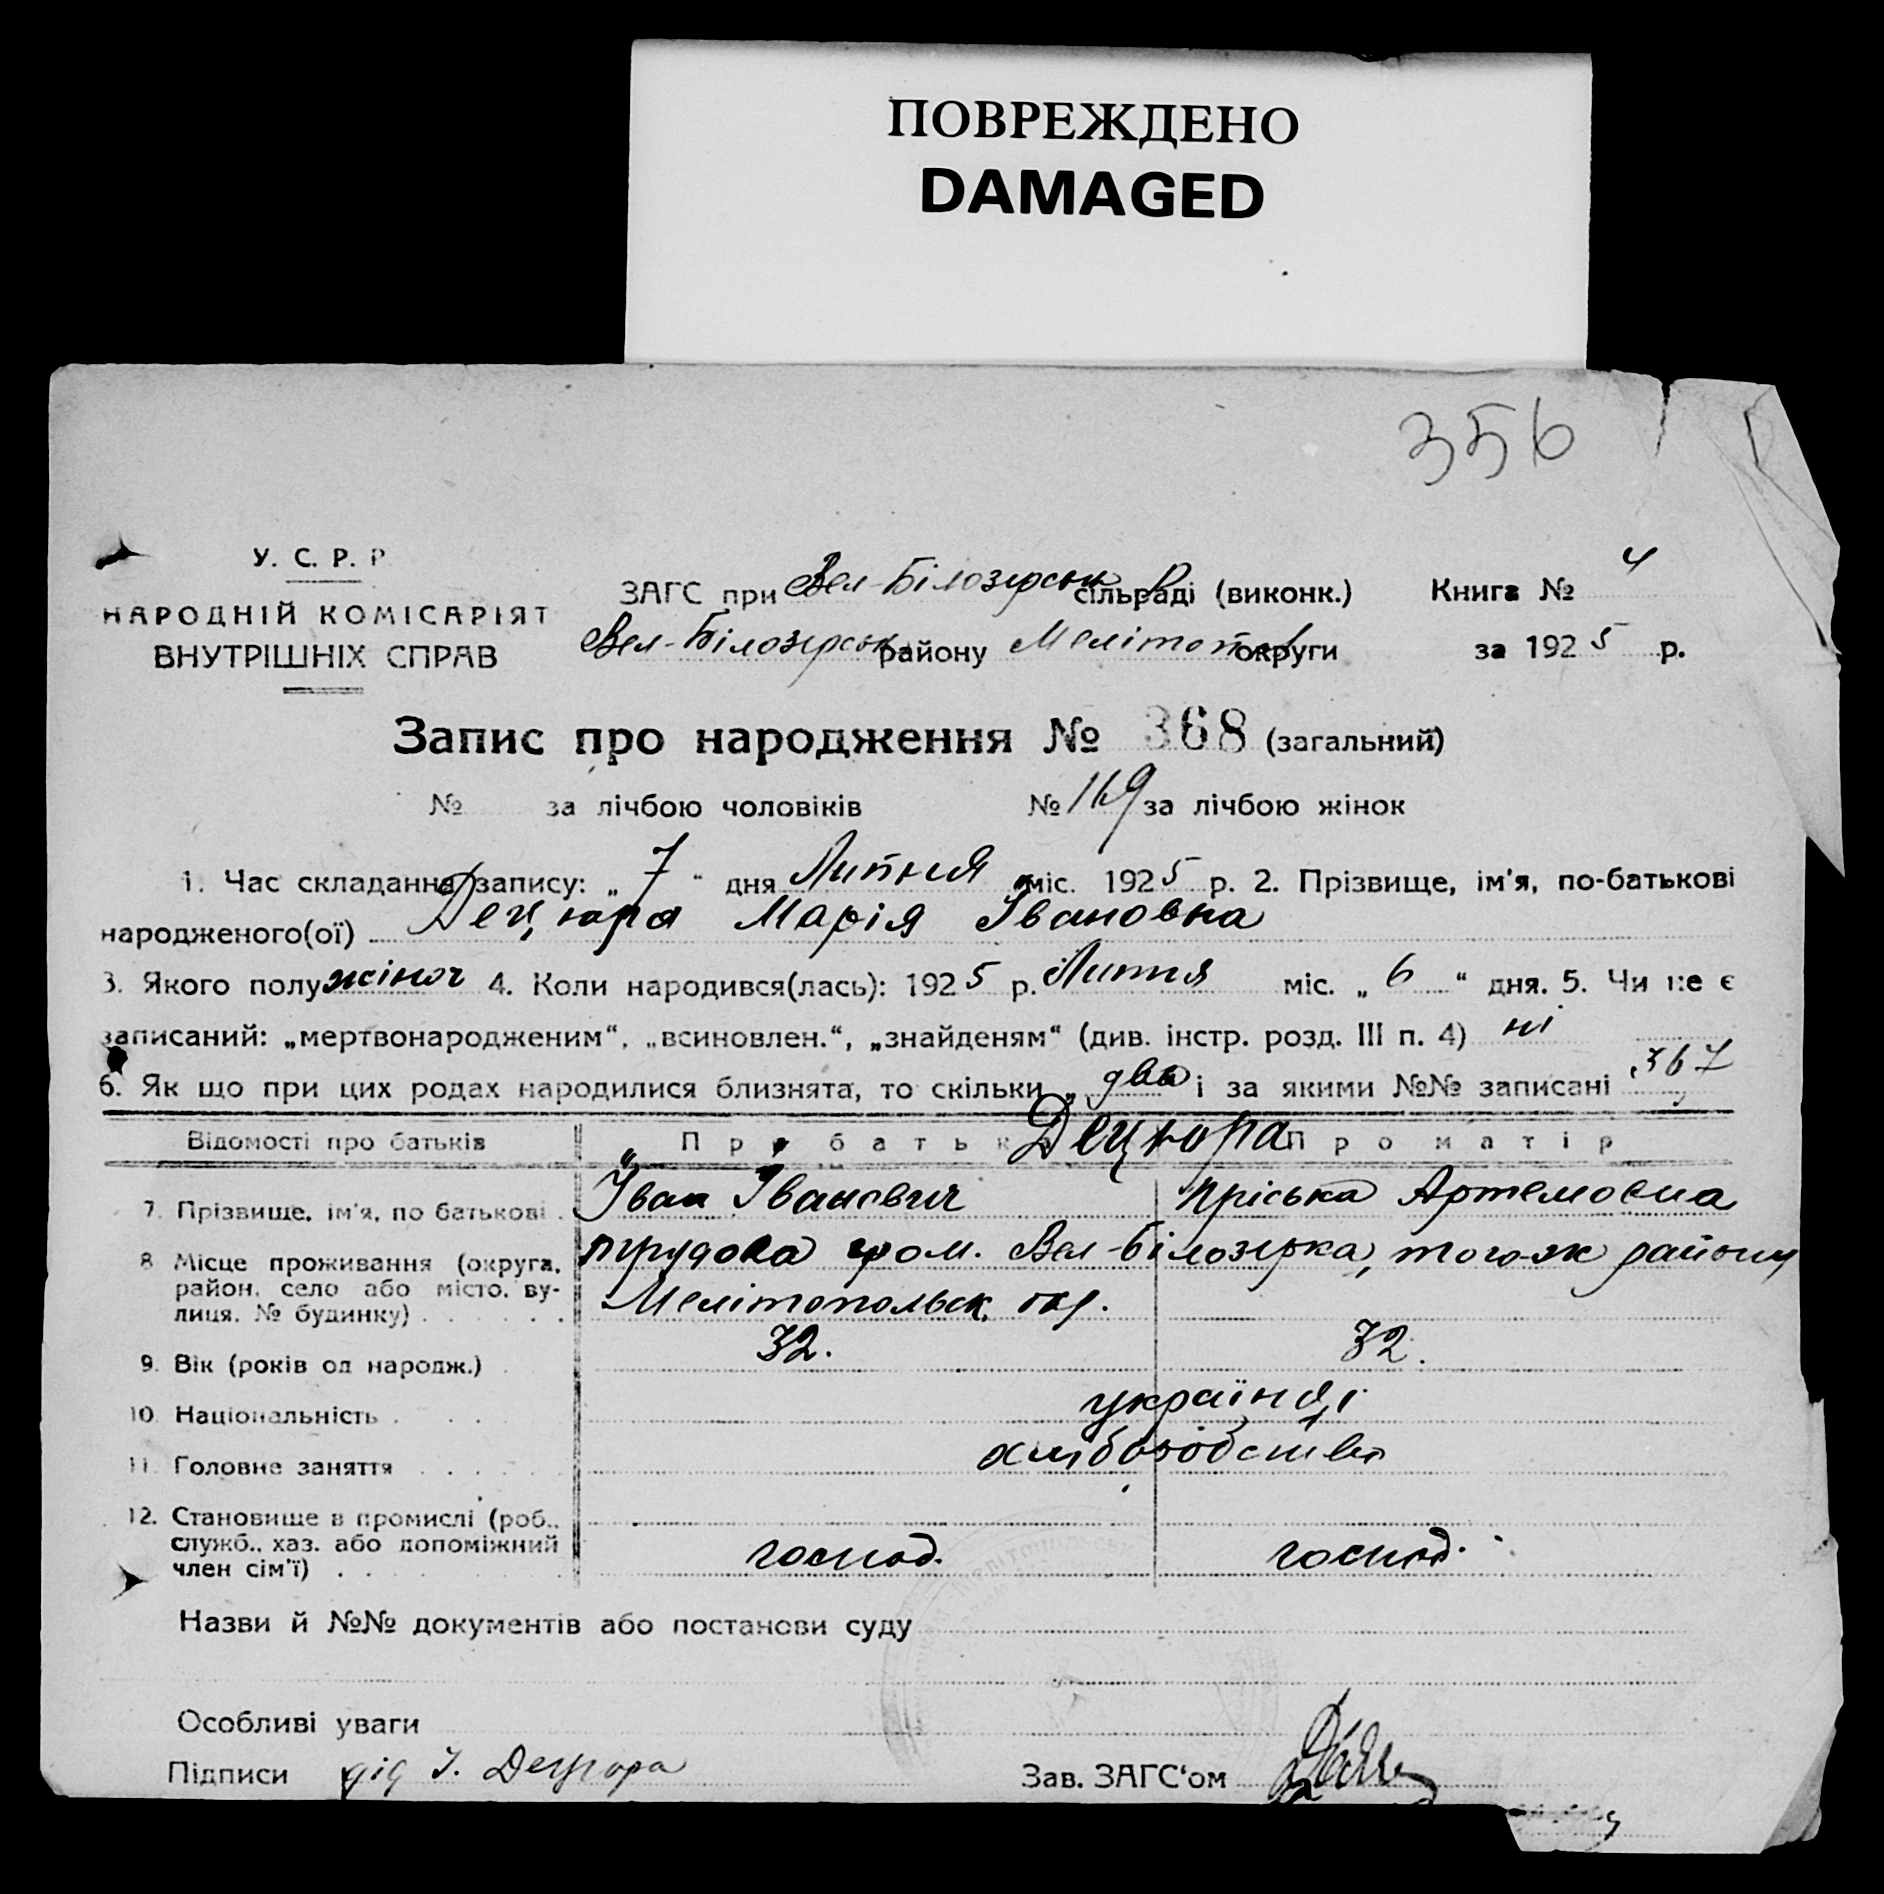 ПОВРЕЖДЕНО
DAMAGED
356
У. С. Р. Р
НАРОДНІЙ КОМІСАРІЯТ
ВНУТРІШНІХ СПРАВ
ЗАГС при Вел-Білозерськ сільраді (виконк.) Книга № 4
Вел-Білозерськ району Мелітоп округи за 1925 р.
Запис про народження № 368 (загальний)
№ за лічбою чоловіків № 169 за лічбою жінок
1. Час складання запису: „ 7 “ дня Липня міс. 1925 р. 2. Прізвище, ім'я, по-батькові
народженого(ої) Децюра Марія Івановна
3. Якого полу жіноч 4. Коли народився(лась): 1925 р. Липня міс. „ 6 “ дня. 5. Чи не є
записаний: „мертвонародженим“, „всиновлен.“, „знайденям“ (див. інстр. розд. III п. 4) ні
6. Як що при цих родах народилися близнята, то скільки „ два і за якими №№ записані 367
Відомості про батьків Про батька Децюра Про матір
7. Прізвище, ім'я, по батькові . Іван Іванович Пріська Артемовна
8. Місце проживання (округа, район, село або місто, ву-
лиця, № будинку) . . . . . . трудова гром. Вел-Білозерка, того-ж району
Мелітопольск. окр.
9. Вік (років од народж.) . 32. 32.
10. Національність . . . українці
11. Головне заняття . . . . . хліборобство
12. Становище в промислі (роб.,
служб., хаз. або допоміжний
член сім'ї) . . . . . . господ. господ.
Назви й №№ документів або постанови суду
Особливі уваги
Підписи дід І. Децюра Зав. ЗАГС'ом